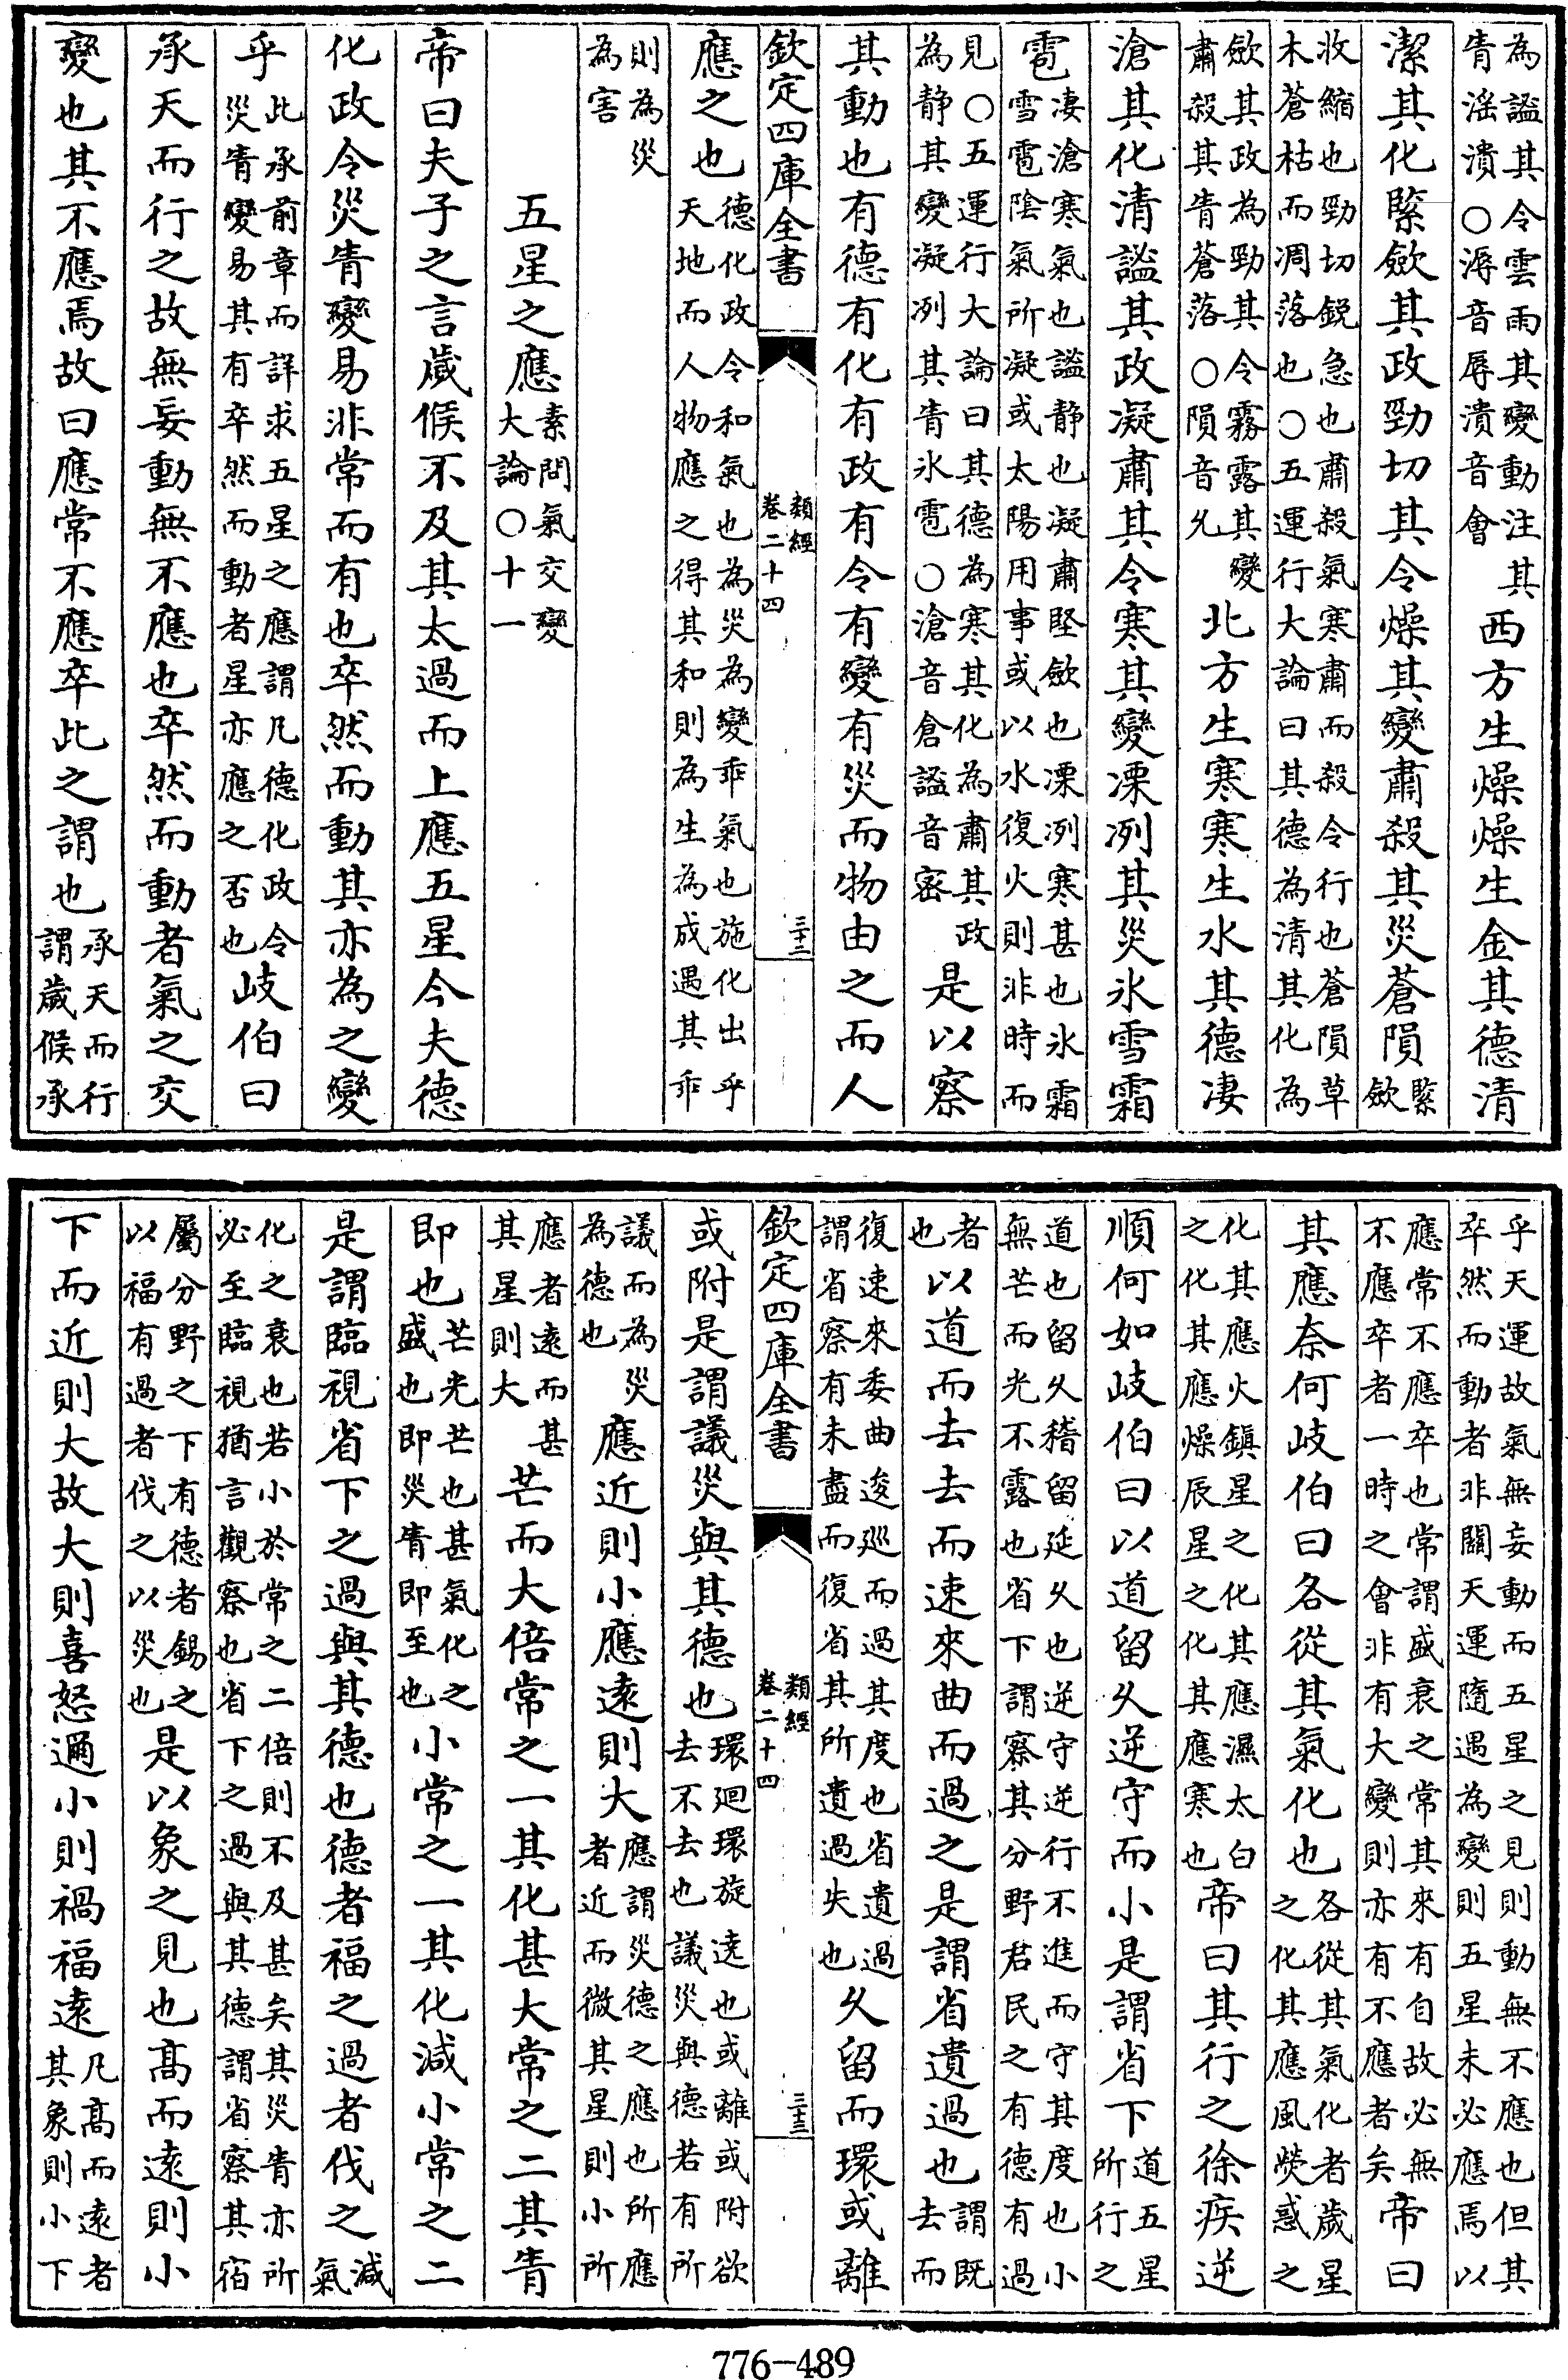 為謐其令雲雨其變動注其
眚滛潰○溽音辱潰音會
西方生燥燥生金其德清
潔其化緊斂其政勁切其令燥其變肅殺其災蒼隕
緊
斂
收縮也勁切鋭急也肅殺氣寒肅而殺令行也蒼隕草
木蒼枯而凋落也○五運行大論曰其德為清其化為
斂其政為勁其令霧露其變
肅殺其眚蒼落○隕音允
北方生寒寒生水其德凄
滄其化清謐其政凝肅其令寒其變凓冽其災氷雪霜
雹
凄滄寒氣也謐静也凝肅堅斂也凓冽寒甚也氷霜
雪雹陰氣所凝或太陽用事或以水復火則非時而
見○五運行大論曰其德為寒其化為肅其政
為静其變凝冽其眚氷雹○滄音倉謐音密
是以察
其動也有德有化有政有令有變有災而物由之而人
欽定四庫全書
類經
卷二十四
三十二
應之也
德化政令和氣也為災為變乖氣也施化出乎
天地而人物應之得其和則為生為成遇其乖
則為災
為害
五星之應
素問氣交變
大論○十一
帝曰夫子之言歲候不及其太過而上應五星今夫德
化政令災眚變易非常而有也卒然而動其亦為之變
乎
此承前章而詳求五星之應謂凡德化政令
災眚變易其有卒然而動者星亦應之否也
岐伯曰
承天而行之故無妄動無不應也卒然而動者氣之交
變也其不應焉故曰應常不應卒此之謂也
承天而行
謂歲候承
乎天運故氣無妄動而五星之見則動無不應也但其
卒然而動者非關天運隨遇為變則五星未必應焉以
應常不應卒也常謂盛衰之常其來有自故必無
不應卒者一時之會非有大變則亦有不應者矣
帝曰
其應奈何岐伯曰各從其氣化也
各從其氣化者歲星
之化其應風熒惑之
化其應火鎮星之化其應濕太白
之化其應燥辰星之化其應寒也
帝曰其行之徐疾逆
順何如岐伯曰以道留乆逆守而小是謂省下
道五星
所行之
道也留乆稽留延乆也逆守逆行不進而守其度也小
無芒而光不露也省下謂察其分野君民之有德有過
者
也
以道而去去而速來曲而過之是謂省遺過也
謂既
去而
復速來委曲逡巡而過其度也省遺過
謂省察有未盡而復省其所遺過失也
乆留而環或離
欽定四庫全書
類經
卷二十四
三十三
或附是謂議災與其德也
環廻環旋遶也或離或附欲
去不去也議災與德若有所
議而為災
為德也
應近則小應遠則大
應謂災德之應也所應
者近而微其星則小所
應者遠而甚
其星則大
芒而大倍常之一其化甚大常之二其眚
即也
芒光芒也甚氣化之
盛也即災眚即至也
小常之一其化減小常之二
是謂臨視省下之過與其德也德者福之過者伐之
減
氣
化之衰也若小於常之二倍則不及甚矣其災眚亦所
必至臨視猶言觀察也省下之過與其德謂省察其宿
屬分野之下有德者錫之
以福有過者伐之以災也
是以象之見也髙而遠則小
下而近則大故大則喜怒邇小則禍福遠
凡髙而遠者
其象則小下
776-489